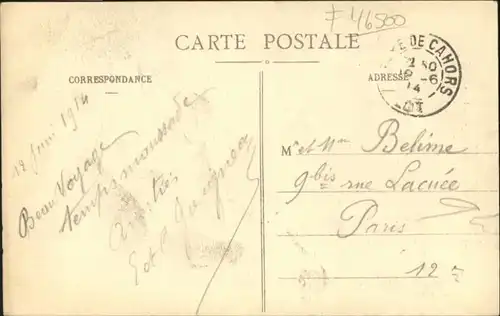 # 46500
CARTE POSTALE
CORRESPONDANCE
ADRESSE
DE CAHORS
12 -6
14
LOT
12 Juin 1914
Beau Voyage
temps moussade
Amitiés
M et Mm Belime
9 bis rue Lacuée
Paris
12